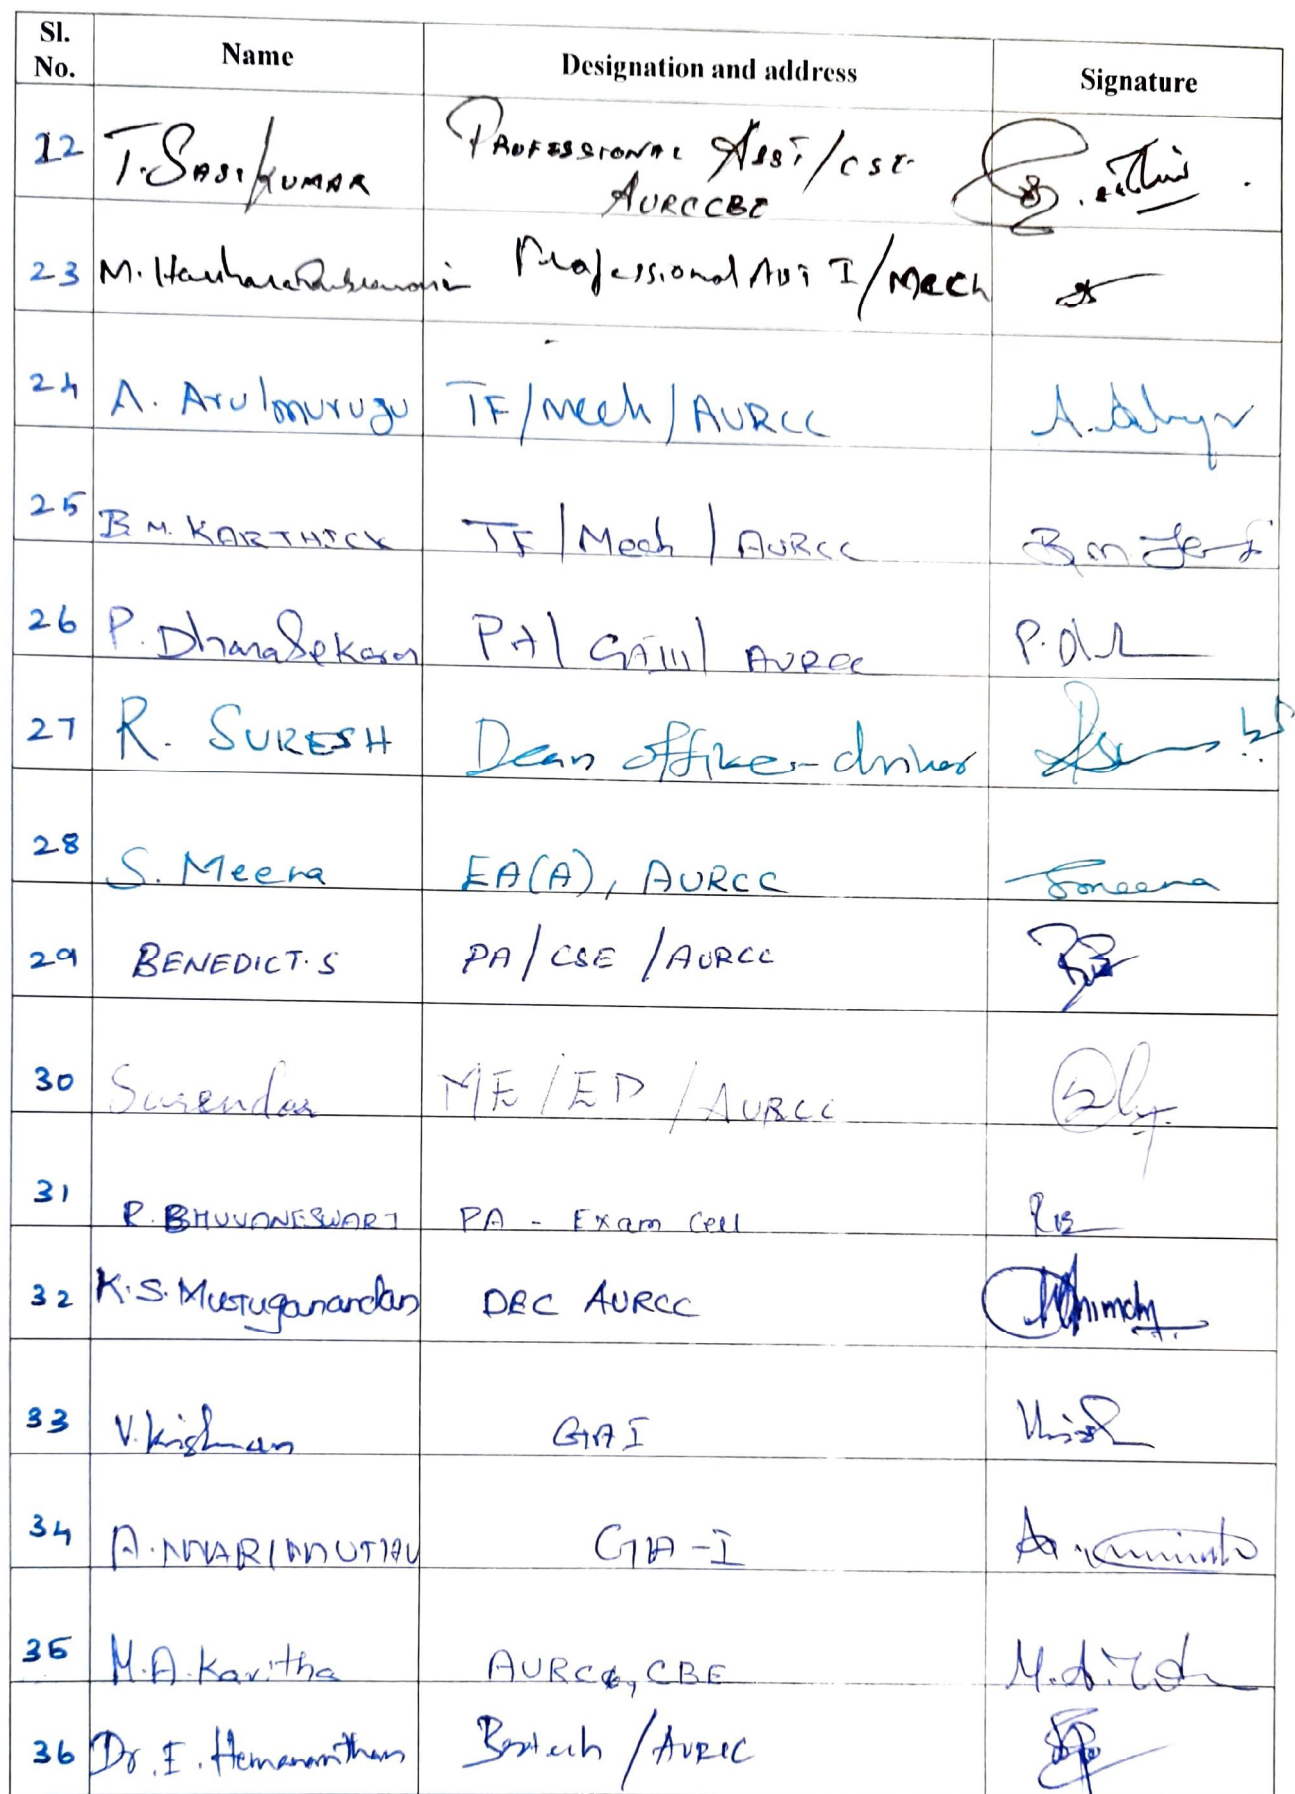 Sl. No. Name Designation and address Signature
22 T. SASIKUMAR PROFESSIONAL ASST/CSE
AURCCBE
23 M. Professional Asst I/Mech
24 A. Arulmurugu TF/Mech/AURCC
25 B.M. KARTHICK TF/Mech/AURCC B.M
26 P. DhanaSekaran PA/GAIII/AURCC P.
27 R. SURESH Dean office-driver
28 S. Meena EA(A), AURCC Smeena
29 BENEDICT.S PA/CSE/AURCC
30 Surendar ME/ED/AURCC
31 R. BHUVANESWARI PA - Exam Cell
32 K.S. Muruganandan AURCC
33 V. Krishnan GA I
34 A. MARIMUTHU GA-I
35 M.A. Kavitha AURCC, CBE
36 Dr. E. /AURCC